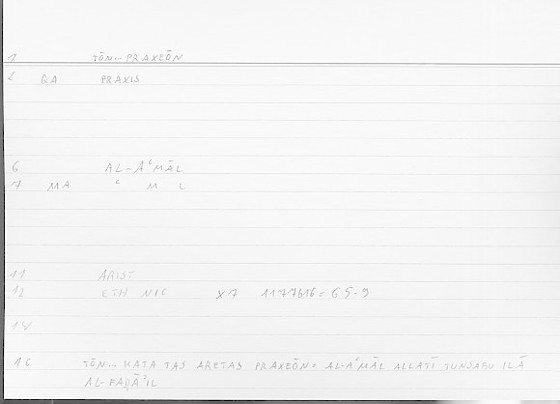 1 TŌN... PRAXEŌN
2 QA PRAXIS
6 AL-AʿMĀL
7 MA ʿ M L
11 ARIST
12 ETH NIC X 7 1177b16 = 65.9
14
16 TŌN... KATA TAS ARETAS PRAXEŌN = AL-AʿMĀL ALLATĪ TUNSABU ILĀ
AL-FAḌĀʾIL